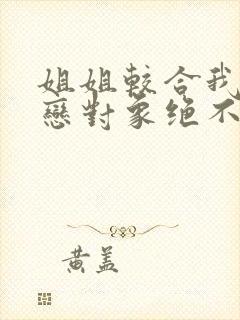 姐姐較合我
戀對象絕不
黄盖